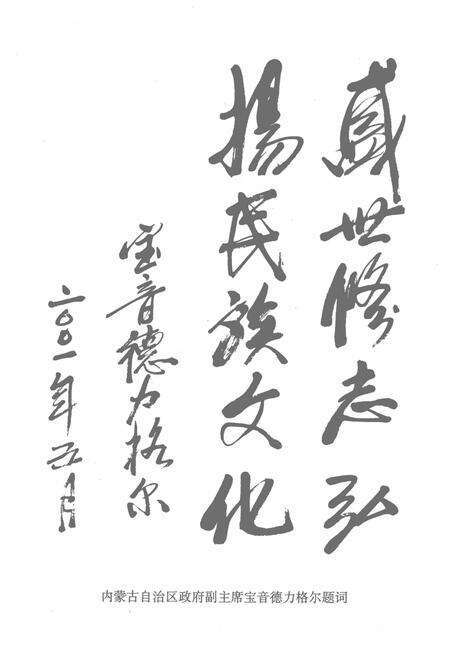 盛世修志弘
揚民族文化
宝音德力格尔
二〇〇一年五月
内蒙古自治区政府副主席宝音德力格尔题词